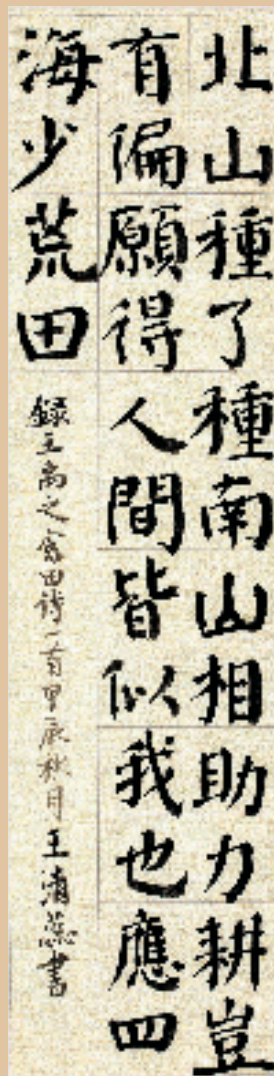 北山種了種南山相助力耕豈
有偏願得人間皆似我也應四
海少荒田
録王禹之畬田詩一首甲辰秋月王清蕊書